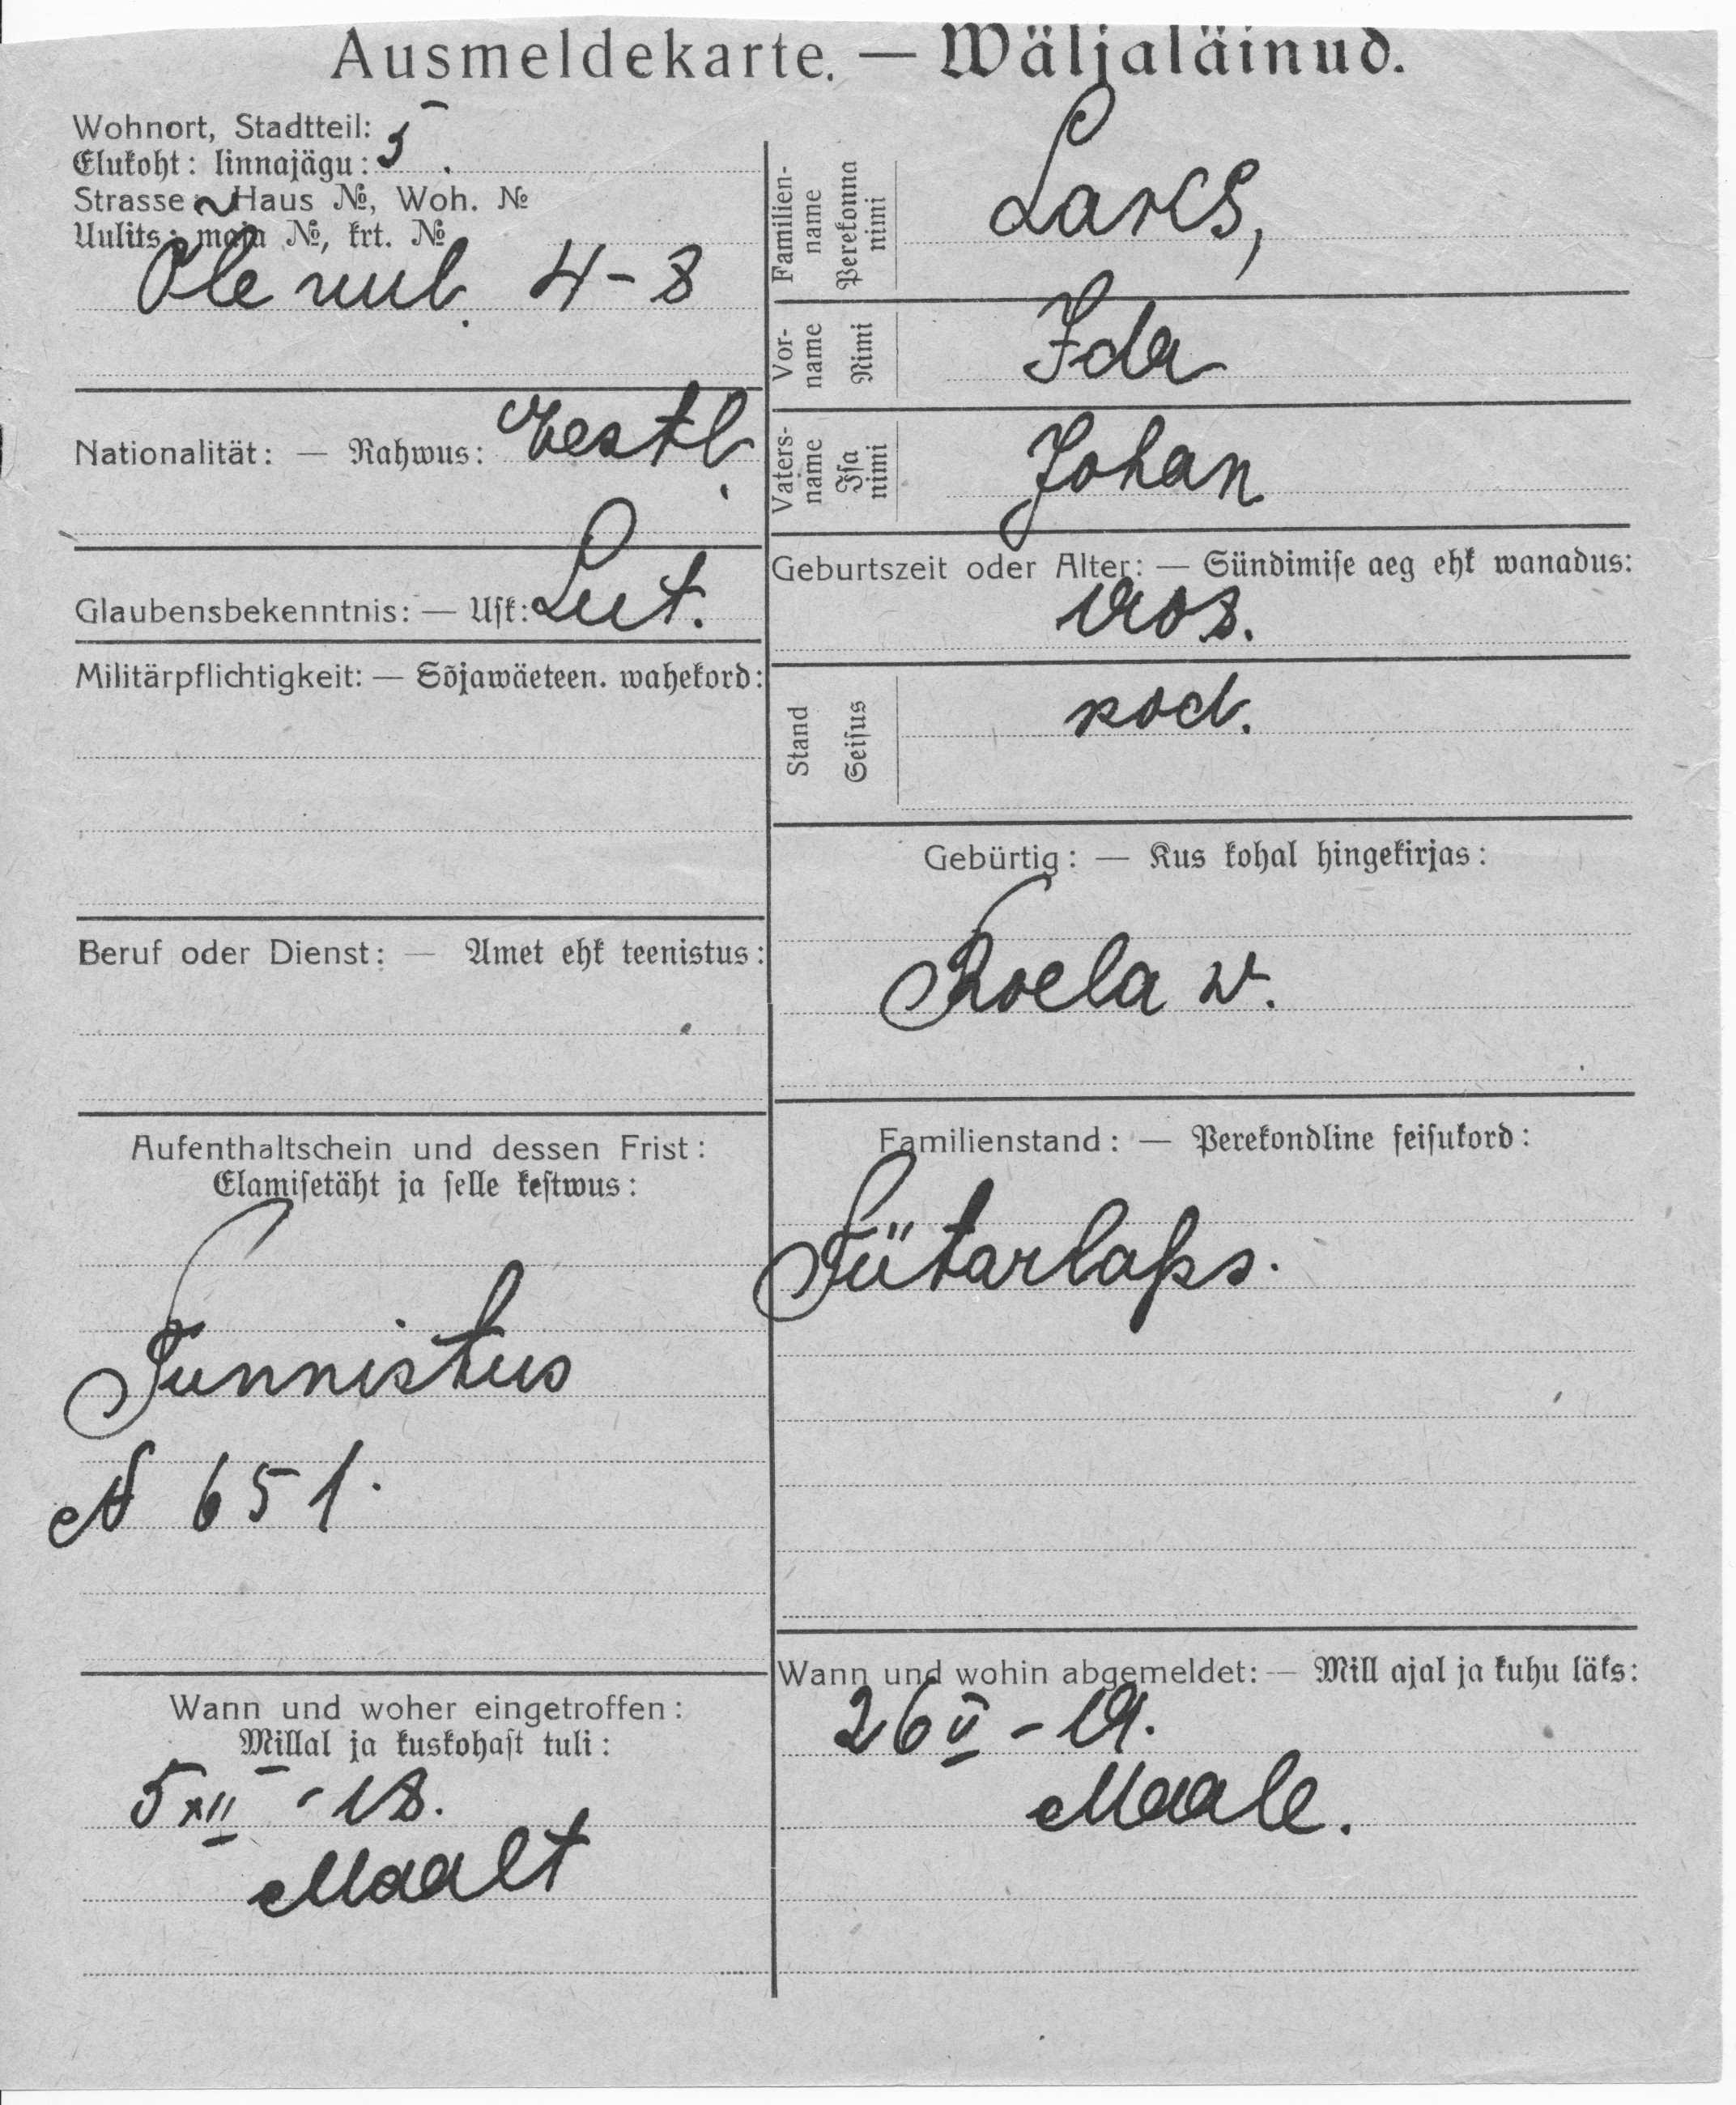 Ausmeldekarte. — Wäljaläinud.
Wohnort, Stadtteil:
Elukoht: linnajägu: 5.
Strasse, Haus №, Woh. №
Uulits: maja №, krt. №
4-8
Nationalität: — Rahwus: Eestl.
Glaubensbekenntnis: — Usk: Lut.
Militärpflichtigkeit: — Sõjawäeteen. wahekord:
Beruf oder Dienst: — Amet ehk teenistus:
Aufenthaltschein und dessen Frist:
Elamisetäht ja selle kestwus:
Tunnistus
№ 651.
Wann und woher eingetroffen:
Millal ja kuskohast tuli:
5 XII - 18.
Maalt
Familien-
name
Perekonna
nimi
Lares,
Vor-
name
Nimi
Ida
Vaters-
name
Isa
nimi
Johan
Geburtszeit oder Alter: — Sündimise aeg ehk wanadus:
Stand
Seisus
Gebürtig: — Kus kohal hingekirjas:
Roela w.
Familienstand: — Perekondline seisukord:
Tütarlaps.
Wann und wohin abgemeldet: — Mill ajal ja kuhu läks:
26 V - 19.
Maale.